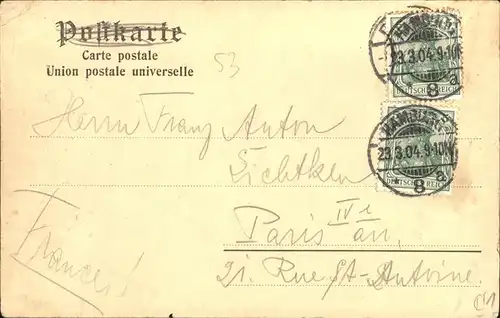 Postkarte
Carte postale
Union postale universelle
53
HAMBURG
23.3.04.9-10N
8 a
DEUTSCHES REICH
HAMBURG
23.3.04.9-10N
8 a
DEUTSCHES REICH
Herrn Franz Anton
Lichtken
Paris IVe
21. Rue St-Antoine